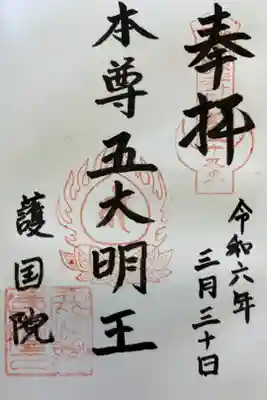 奉拝
令和六年
三月三十日
本尊五大明王
護国院